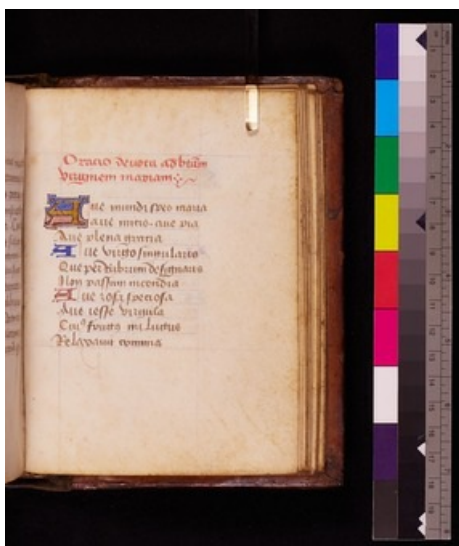 Oracio deuota ad btam
virginem mariam
Aue mundi spes maria
aue mitis aue pia
Aue plena gracia
Aue virgo singularis
Que per rubrum designaris
Non passum incendia
Aue rosa speciosa
Aue iesse virgula
Cui9 fructus
Relaxauit